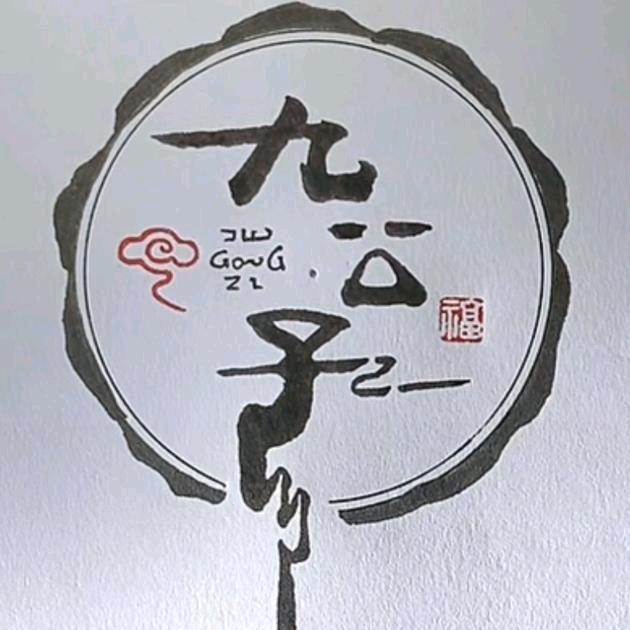 九
公
JIU
GONG
ZI
子
福